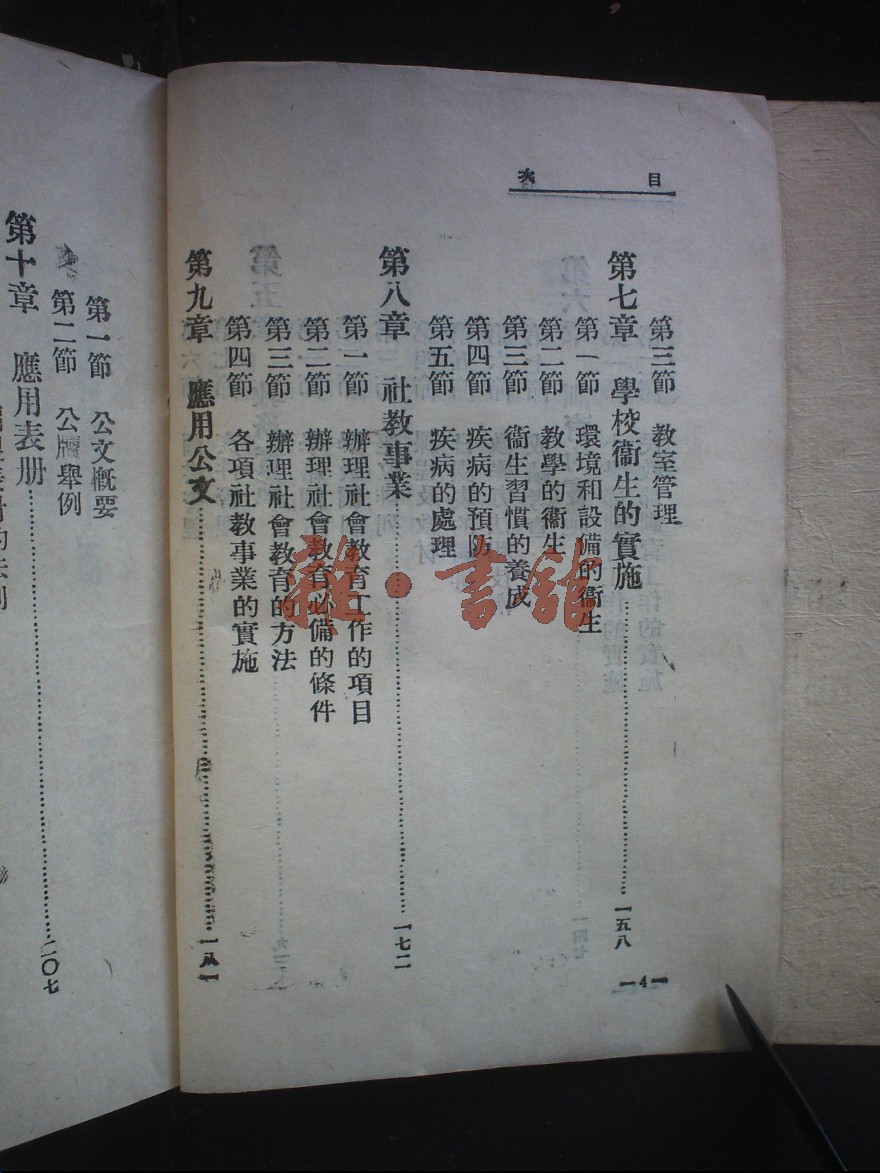 目次
第三節 教室管理
第七章 學校衞生的實施……一五八
第一節 環境和設備的衞生
第二節 教學的衞生
第三節 衞生習慣的養成
第四節 疾病的預防
第五節 疾病的處理
第八章 社教事業……一七二
第一節 辦理社會教育工作的項目
第二節 辦理社會教育必備的條件
第三節 辦理社會教育的方法
第四節 各項社教事業的實施
第九章 應用公文……一八一
—4—
第一節 公文概要
第二節 公牘舉例
第十章 應用表册……二〇七
雜·書館